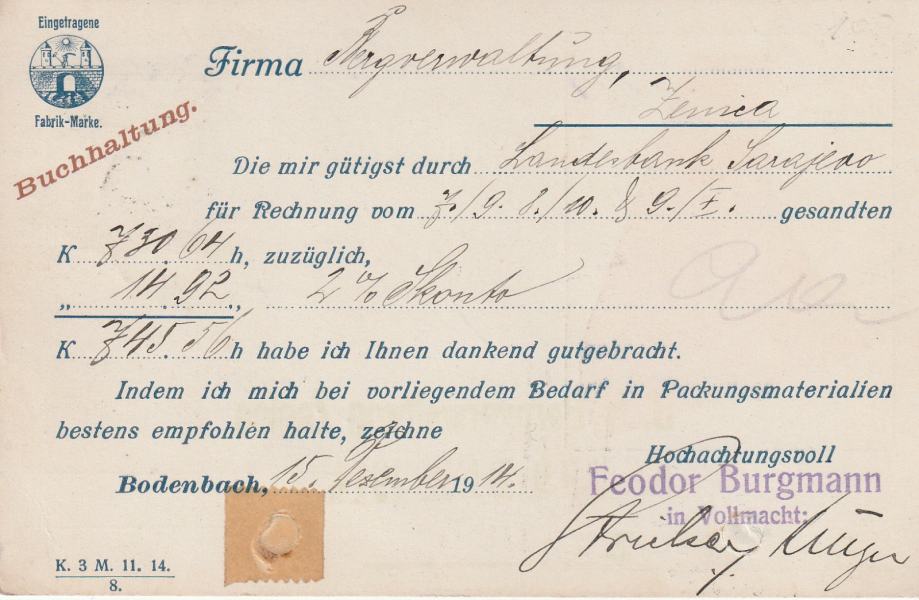 Eingetragene
Fabrik-Marke.
Buchhaltung.
Firma Bergverwaltung,
Zenica
Die mir gütigst durch Landesbank Sarajevo
für Rechnung vom 7./9. 8./10. & 9./X. gesandten
K 730.64 h, zuzüglich,
„ 14.92 „ 2 % Skonto
K 745.56 h habe ich Ihnen dankend gutgebracht.
Indem ich mich bei vorliegendem Bedarf in Packungsmaterialien
bestens empfohlen halte, zeichne
Hochachtungsvoll
Bodenbach, 15. Dezember 1914.
Feodor Burgmann
in Vollmacht:
K. 3 M. 11. 14.
8.